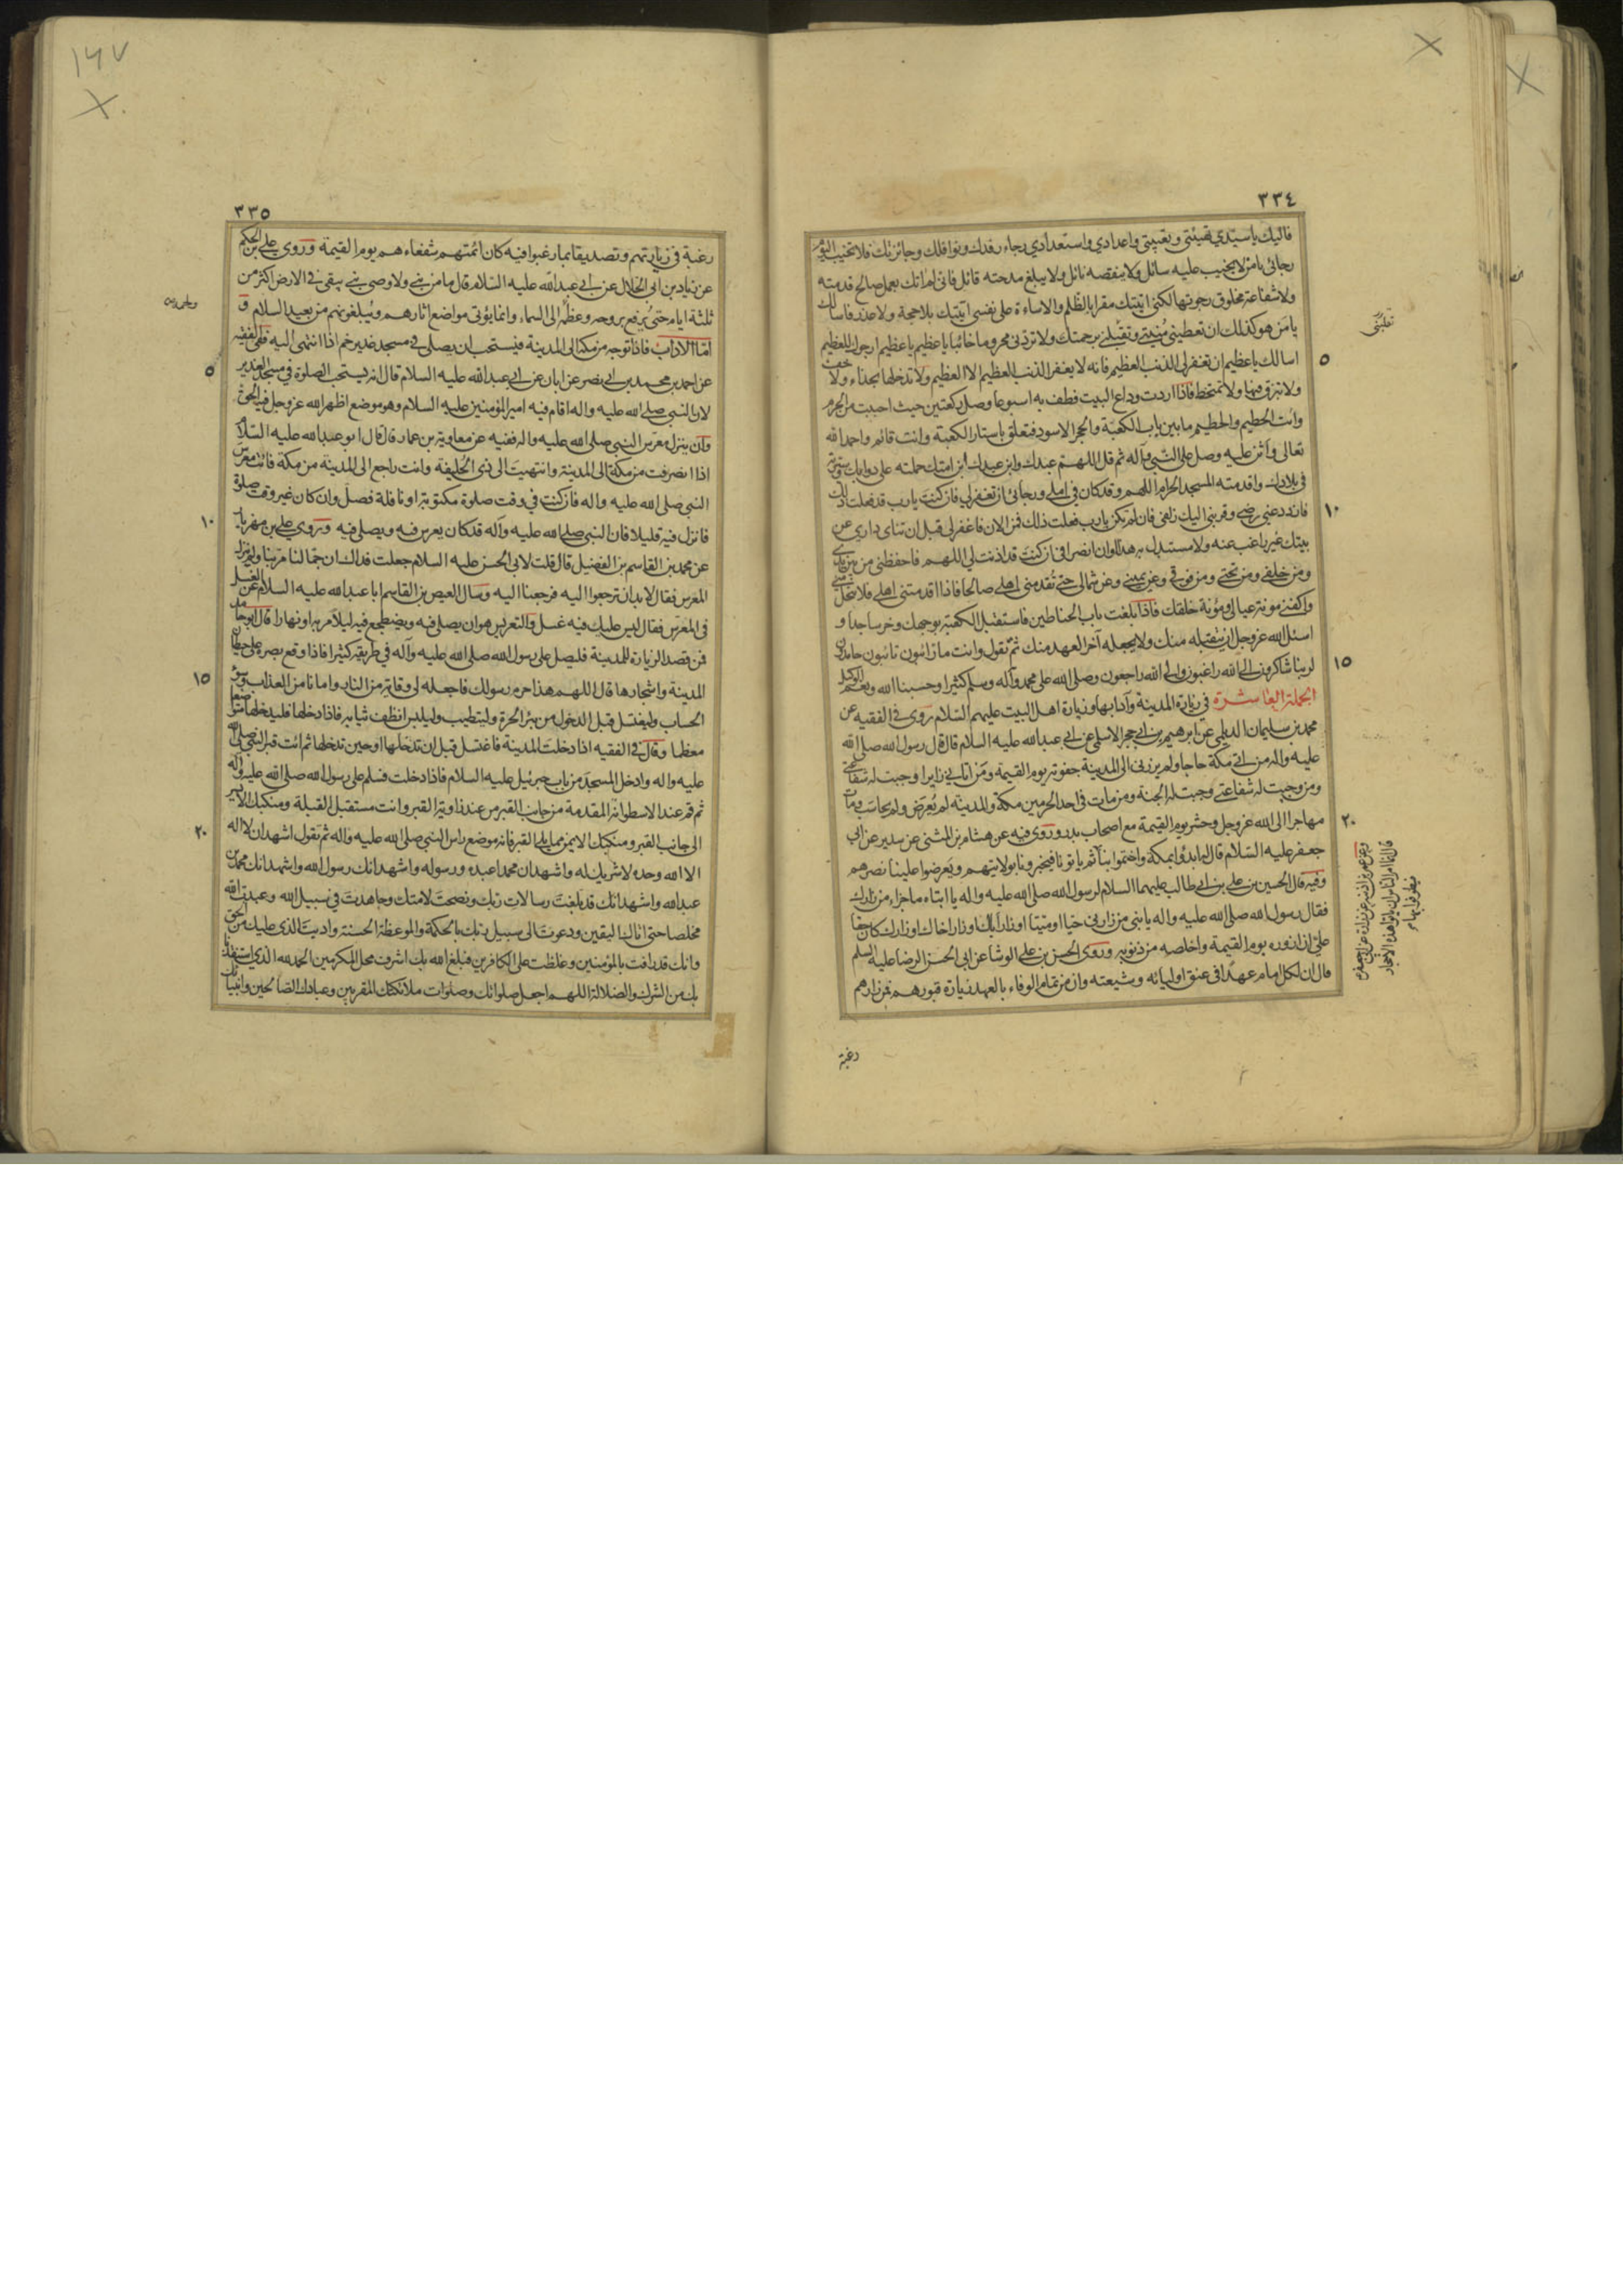 ٣٣٤
فاليك يا سيدي تهيئتي وتعبيتي واعدادي واستعدادي رجاء رفدك ونوافلك وجائزتك فلا تخيب اليوم
رجائي يا من لا يخيب عليه سائل ولا ينقصه نائل ولا يبلغ مدحته قائل فاني لم اتك بعمل صالح قدمته
ولا شفاعة مخلوق رجوتها لكني اتيتك مقرا بالظلم والاساءة على نفسي اتيتك بلا حجة ولا عذر فاسالك
يا من هو كذلك ان تعطيني منيتي وتقبلني برحمتك ولا تردني محروما خائبا يا عظيم يا عظيم ارجوك للعظيم
اسالك يا عظيم ان تغفر لي الذنب العظيم فانه لا يغفر الذنب العظيم الا العظيم ولا تدخلها بحذاء ولا خف
ولا تبزق فيها ولا تمتخط فاذا اردت وداع البيت فطف به اسبوعا وصل ركعتين حيث احببت من الحرم
وائت الحطيم والحطيم ما بين باب الكعبة والحجر الاسود فتعلق باستار الكعبة وانت قائم واحمد الله
تعالى واثن عليه وصل على النبي وآله ثم قل اللهم عبدك وابن عبدك ابن امتك حملته على دوابك وسيرته
في بلادك واقدمته المسجد الحرام اللهم وقد كان في املي ورجائي ان تغفر لي فان كنت يا رب قد فعلت ذلك
فازدد عني رضى وقربني اليك زلفى فان لم تكن يا رب فعلت ذلك فمن الان فاغفر لي قبل ان تناى داري عن
بيتك غير راغب عنه ولا مستبدل به هذا اوان انصرافي ان كنت قد اذنت لي اللهم فاحفظني من بين يدي
ومن خلفي ومن تحتي ومن فوقي وعن يميني وعن شمالي حتى تقدمني اهلي صالحا فاذا اقدمتني اهلي فلا تخل مني
واكفني مونة عيالي ومؤنة خلقك فاذا بلغت باب الحناطين فاستقبل الكعبة بوجهك وخر ساجدا و
اسئل الله عز وجل ان يتقبله منك ولا يجعله آخر العهد منك ثم تقول وانت مار ائبون تائبون حامدون
لربنا شاكرون الى الله راغبون والى الله راجعون وصلى الله على محمد وآله وسلم كثيرا وحسبنا الله ونعم الوكيل
الجملة العاشرة في زيارة المدينة وآدابها وزيارة اهل البيت عليهم السلام روى في الفقيه عن
محمد بن سليمان الديلمي عن ابرهيم بن ابي حجر الاسلمي عن ابي عبد الله عليه السلام قال قال رسول الله صلى الله
عليه وآله من اتى مكة حاجا ولم يزرني الى المدينة جفوته يوم القيمة ومن اتاني زايرا وجبت له شفاعتي
ومن وجبت له شفاعتي وجبت له الجنة ومن مات في احد الحرمين مكة والمدينة لم يعرض ولم يحاسب ومات
مهاجرا الى الله عز وجل وحشر يوم القيمة مع اصحاب بدر وروى فيه عن هشام بن المثنى عن سدير عن ابي
جعفر عليه السلام قال ابدؤا بمكة واختموا بنا
وفيه قال الحسين بن علي بن ابي طالب عليهما السلام لرسول الله صلى الله عليه واله يا ابتاه ما جزاء من زارك
فقال رسول الله صلى الله عليه واله يا بني من زارني حيا او ميتا او زار اباك او زار اخاك او زارك كان حقا
علي ان ازوره يوم القيمة واخلصه من ذنوبه وروى الحسن بن علي الوشا عن ابي الحسن الرضا عليه السلم
قال ان لكل امام عهدا في عنق اوليائه وشيعته وان من تمام الوفاء بالعهد زيارة قبورهم فمن زارهم
رغبة
٣٣٥
رغبة في زيارتهم وتصديقا بما رغبوا فيه كان ائمتهم شفعاءهم يوم القيمة وروى علي بن الحكم
عن زياد بن ابي الحلال عن ابي عبد الله عليه السلام قال ما من نبي ولا وصي نبي يبقى في الارض اكثر من
ثلثة ايام حتى يرفع بروحه وعظمه الى السماء وانما يؤتى مواضع اثارهم ويبلغونهم من بعيد السلام و
اما الاداب فاذا توجه من مكة الى المدينة فيستحب ان يصلي في مسجد غدير خم اذا انتهى اليه ففي الفقيه
عن احمد بن محمد بن ابي نصر عن ابان عن ابي عبد الله عليه السلام قال انه يستحب الصلوة في مسجد الغدير
لان النبي صلى الله عليه واله اقام فيه امير المؤمنين عليه السلام وهو موضع اظهر الله عز وجل فيه الحق
وان ينزل معرس النبي صلى الله عليه واله ففيه عن معاوية بن عمار قال قال ابو عبد الله عليه السلام
اذا انصرفت من مكة الى المدينة وانتهيت الى ذي الحليفة وانت راجع الى المدينة من مكة فائت معرس
النبي صلى الله عليه واله فان كنت في وقت صلوة مكتوبة او نافلة فصل وان كان غير وقت صلوة
فانزل فيه قليلا فان النبي صلى الله عليه وآله قد كان يعرس فيه ويصلي فيه وروى علي بن مهزيار
عن محمد بن القاسم بن الفضيل قال قلت لابي الحسن عليه السلام جعلت فداك ان جمالنا مر بنا ولم ينزل
المعرس فقال لا بد ان ترجعوا اليه فرجعنا اليه وسال العيص بن القاسم ابا عبد الله عليه السلام عن الغسل
في المعرس فقال ليس عليك فيه غسل والتعريس هو ان يصلي فيه ويضطجع فيه ليلا مر به او نهارا
فمن قصد الزيارة للمدينة فليصل على رسول الله صلى الله عليه وآله في طريقه كثيرا فاذا وقع بصره على حيطان
المدينة واشجارها قال اللهم هذا حرم رسولك فاجعله لي وقاية من النار وامانا من العذاب وسوء
الحساب وليغتسل قبل الدخول من بئر الحرة وليتطيب وليلبس انظف ثيابه فاذا دخلها فليدخلها متواضعا
معظما وقال في الفقيه اذا دخلت المدينة فاغتسل قبل ان تدخلها او حين تدخلها ثم ائت قبر النبي صلى الله
عليه واله وادخل المسجد من باب جبرئيل عليه السلام فاذا دخلت فسلم على رسول الله صلى الله عليه وآله
ثم قم عند الاسطوانة المقدمة من جانب القبر من عند زاوية القبر وانت مستقبل القبلة ومنكبك الايسر
الى جانب القبر ومنكبك الايمن مما يلي القبر فانه موضع راس النبي صلى الله عليه وآله ثم تقول اشهد ان لا اله
الا الله وحده لا شريك له واشهد ان محمدا عبده ورسوله واشهد انك رسول الله واشهد انك محمد بن
عبد الله واشهد انك قد بلغت رسالات ربك ونصحت لامتك وجاهدت في سبيل الله وعبدت الله
مخلصا حتى اتاك اليقين ودعوت الى سبيل ربك بالحكمة والموعظة الحسنة واديت الذي عليك من الحق
وانك قد رافت بالمؤمنين وغلظت على الكافرين فبلغ الله بك اشرف محل المكرمين الحمد لله الذي استنقذنا
بك من الشرك والضلالة اللهم اجعل صلواتك وصلوات ملائكتك المقربين وعبادك الصالحين وانبيائك